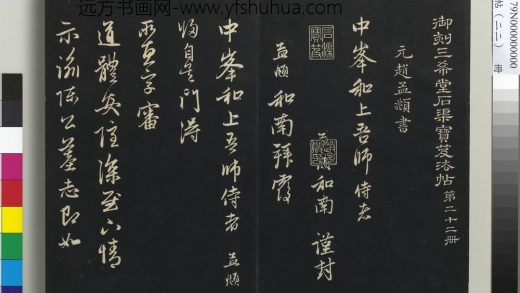 远方书画网-www.yfshuhua.com
御刻三希堂石渠寶笈法帖 第二十二册
元趙孟頫書
中峯和上吾師侍者
孟頫和南謹封
孟頫和南拜覆
中峯和上吾師侍者 孟頫
歸自吴門得
所惠字審
道體安隱深慰下情
示諭陳公墓志即如